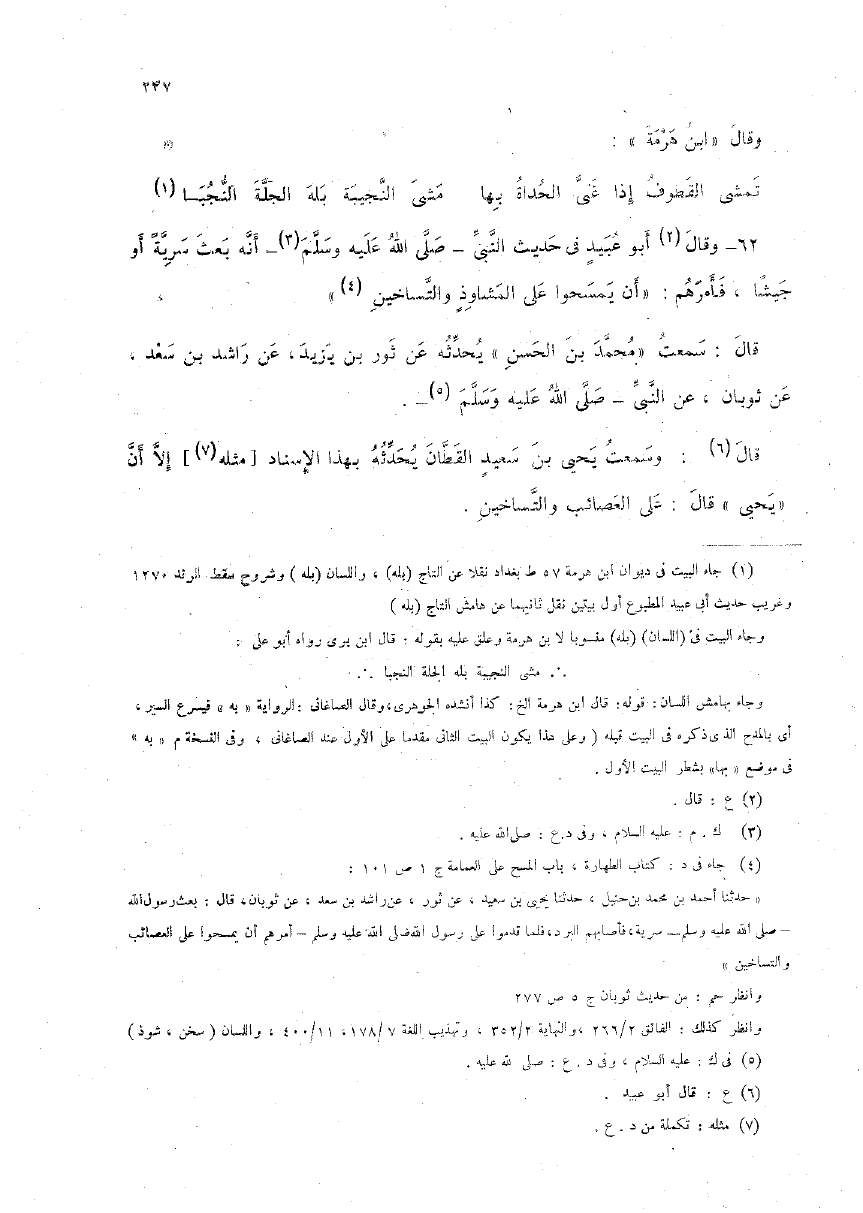 ٢٤٧
وقالَ «ابنُ هَرْمَةَ» :
تَمشى القَطوفُ إذا غَنىَّ الحُداةُ بِها مَشىَ النَّجيبَة بَلهَ الجلَّةَ النُّجُبَا (١)
٦٢ـ وقالَ (٢) أبو عُبَيدٍ فى حَديث النَّبىِّ ـ صَلَّى اللهُ عَلَيه وسَلَّمَ (٣)ـ أنَّه بَعثَ سَريَّةً أو
جَيشًا ، فَأَمرَهُم : «أن يَمسَحوا عَلى المَشاوذِ والتَّساخينِ (٤) »
قالَ : سَمعتُ «مُحمَّدَ بنَ الحَسنِ » يُحدِّثُه عَن ثَور بن يَزيدَ ، عَن رَاشد بن سَعْد ،
عَن ثوبان ، عن النَّبىِّ ـ صَلَّى اللهُ عَليه وَسَلَّمَ (٥)ـ .
قالَ (٦) : وسَمعتُ يَحيى بنَ سَعيدٍ القَطَّانَ يُحَدِّثُهُ بهذا الإسناد [ مثله (٧) ] إلاَّ أنَّ
«يَحيى » قالَ : عَلى العَصائب والتَّساخينِ .
(١) جاء البيت فى ديوان ابن هرمة ٥٧ ط بغداد نقلا عن التاج (بله) ، واللسان (بله ) وشروح سقط الزند ١٢٧٠
وغريب حديث أبى عبيد المطبوع أول بيتين نقل ثانيهما عن هامش التاج (بله )
وجاء البيت فى (اللسان) (بله) منسوبا لا بن هرمة وعلق عليه بقوله : قال ابن برى رواه أبو على :
.·. مشى النجيبة بله الجلة النجبا .·.
وجاء بهامش اللسان : قوله : قال ابن هرمة الخ : كذا أنشده الجوهرى ، وقال الصاغانى : الرواية « به » فيسرع السير ،
أى بالمدح الذى ذكره فى البيت قبله ( وعلى هذا يكون البيت الثانى مقدما على الأول عند الصاغانى ، وفى النسخة م « به »
فى موضع « بها» بشطر البيت الأول .
(٢) ع : قال .
(٣) ك . م : عليه السلام ، وفى د.ع : صلى الله عليه .
(٤) جاء فى د : كتاب الطهارة ، باب المسح على العمامة ج ١ ص ١٠١ :
« حدثنا أحمد بن محمد بن حنبل ، حدثنا يحيى بن سعيد ، عن ثور ، عن راشد بن سعد ، عن ثوبان ، قال : بعث رسول الله
– صلى الله عليه وسلم– سرية ، فأصابهم البرد ، فلما قدموا على رسول الله صلى الله عليه وسلم – أمرهم أن يمسحوا على العصائب
والتساخين »
وانظر حم : من حديث ثوبان ج ٥ ص ٢٧٧
وانظر كذلك : الفائق ٢٦٦/٢ ، والنهاية ٣٥٢/٢ ، وتهذيب اللغة ١٧٨/٧ ، ٤٠٠/١١ ، واللسان ( سخن ، شوذ )
(٥) فى ك : عليه السلام ، وفى د . ع : صلى لله عليه .
(٦) ع : قال أبو عبيد .
(٧) مثله : تكملة من د . ع .